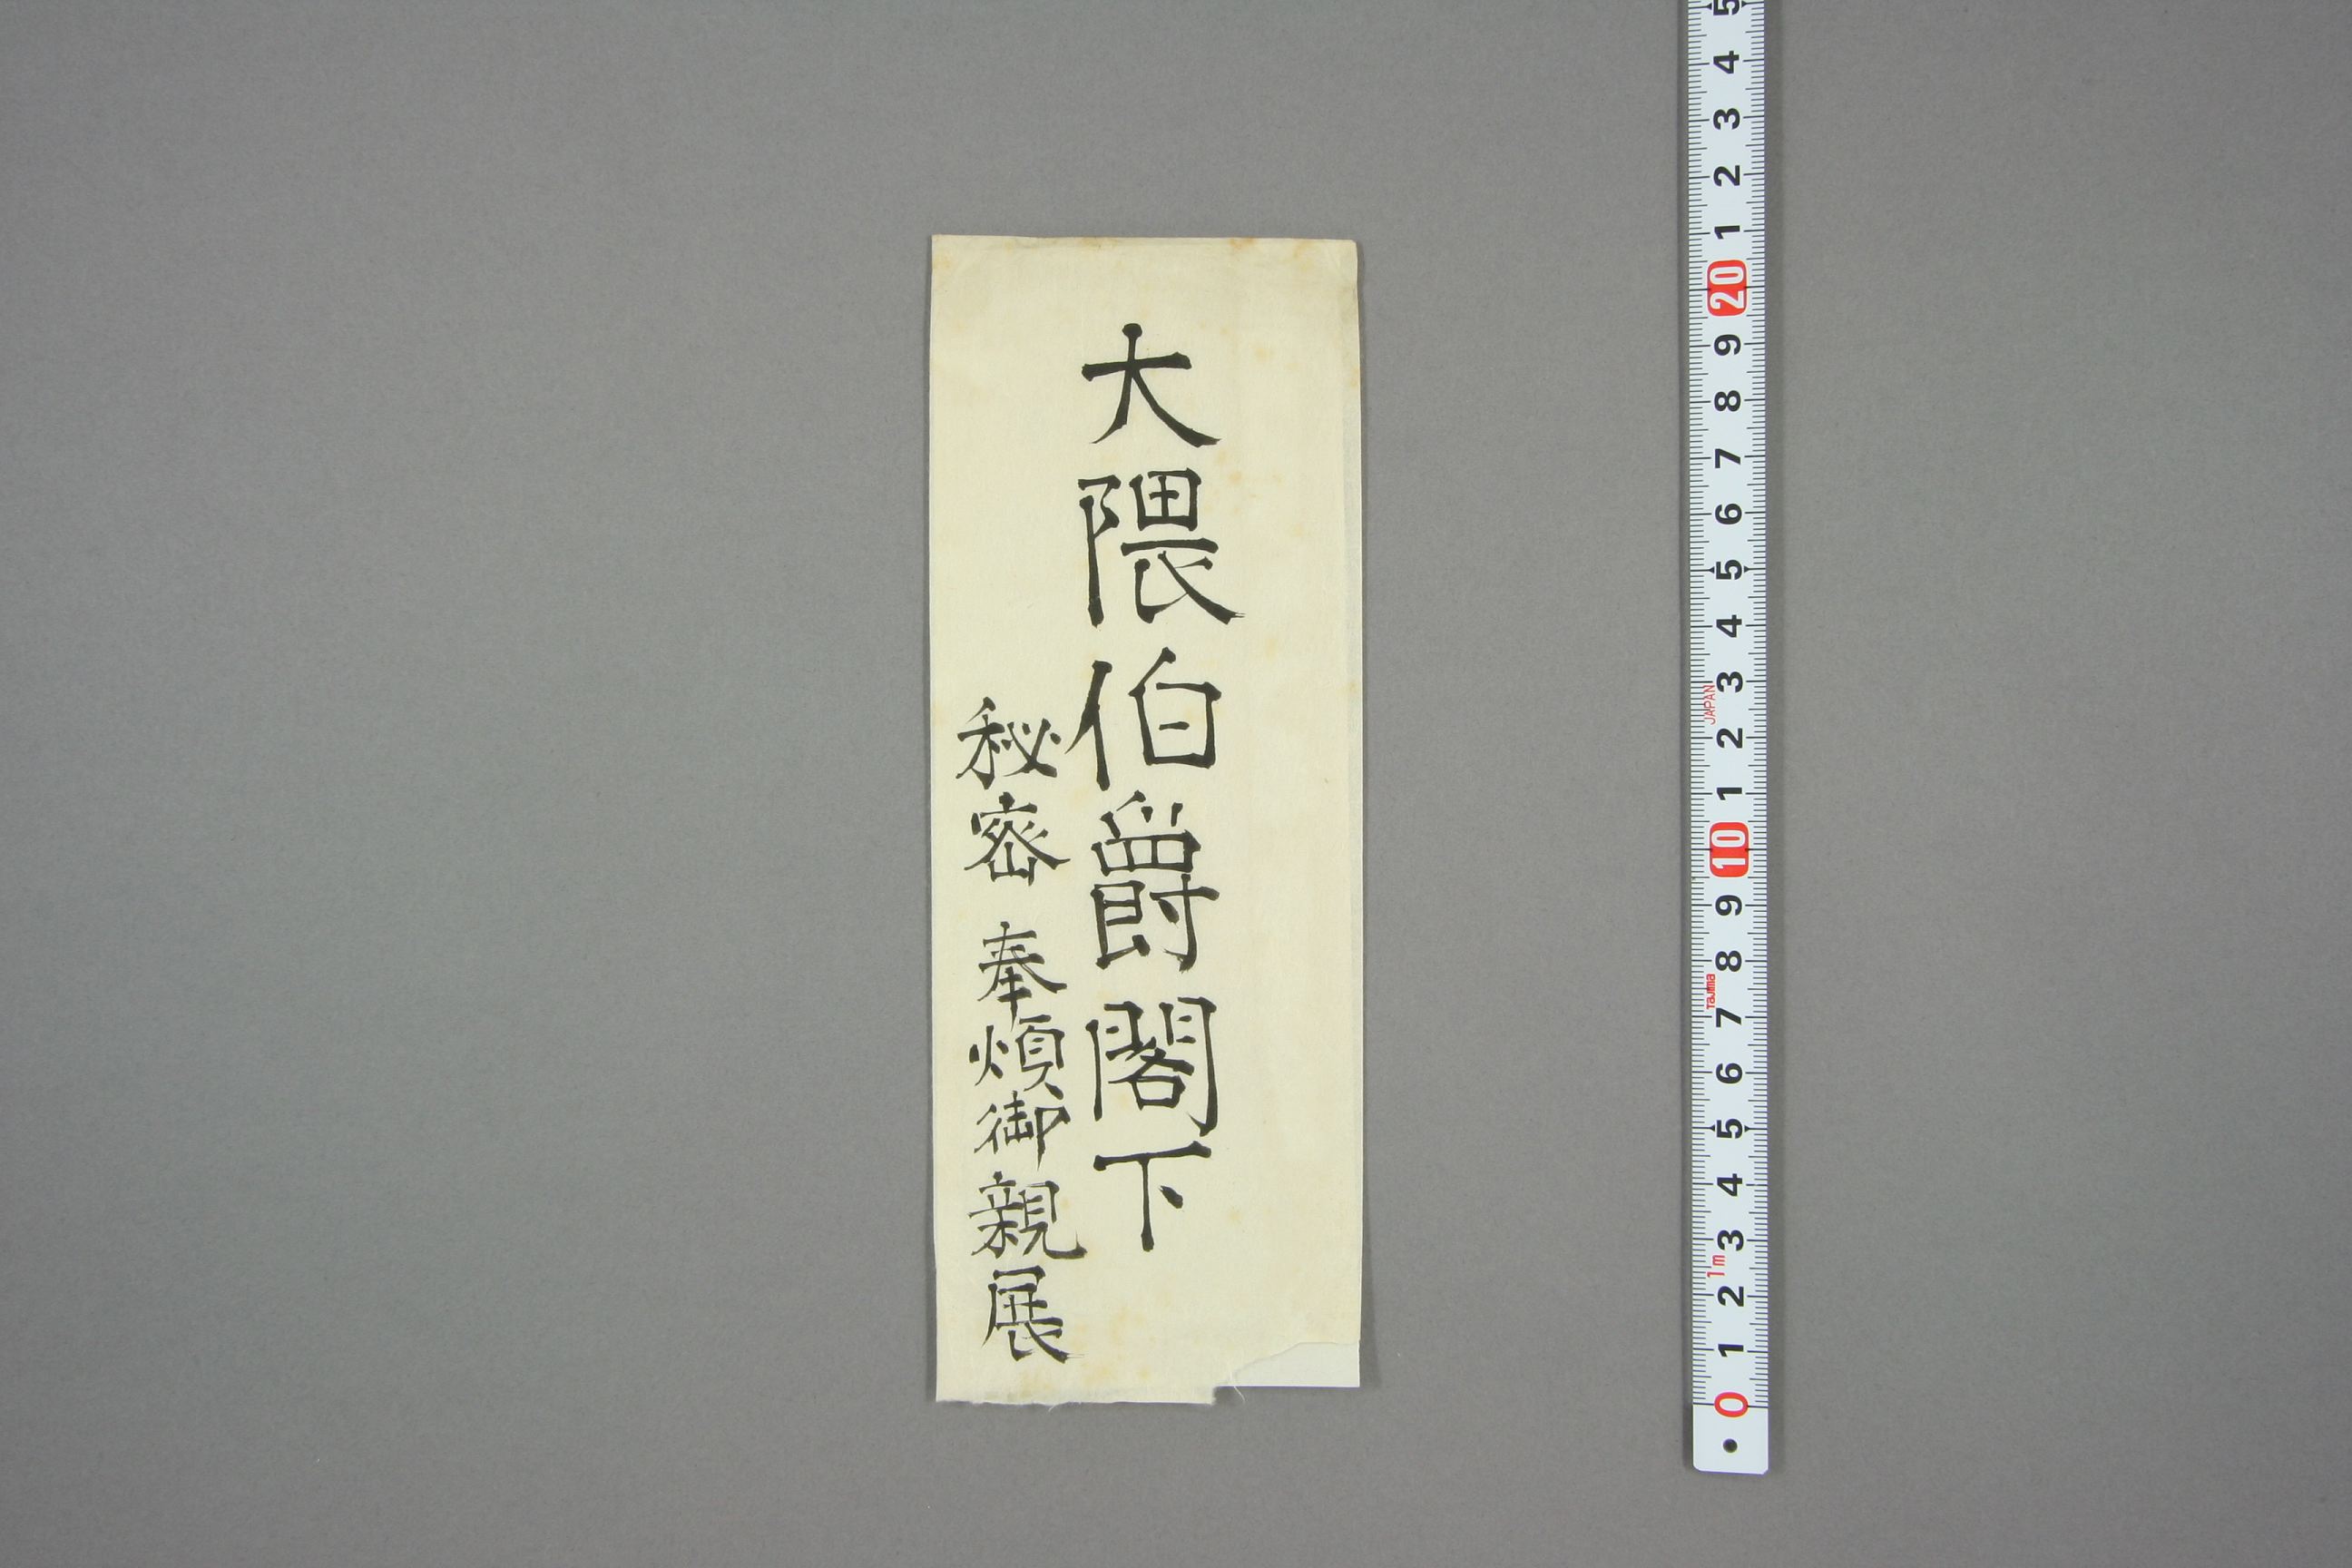 大隈伯爵閣下
秘密 奉煩御親展
5 4 3 2 1 20 9 8 7 6 5 4 3 2 1 10 9 8 7 6 5 4 3 2 1 0
JAPAN
Tajima
1m